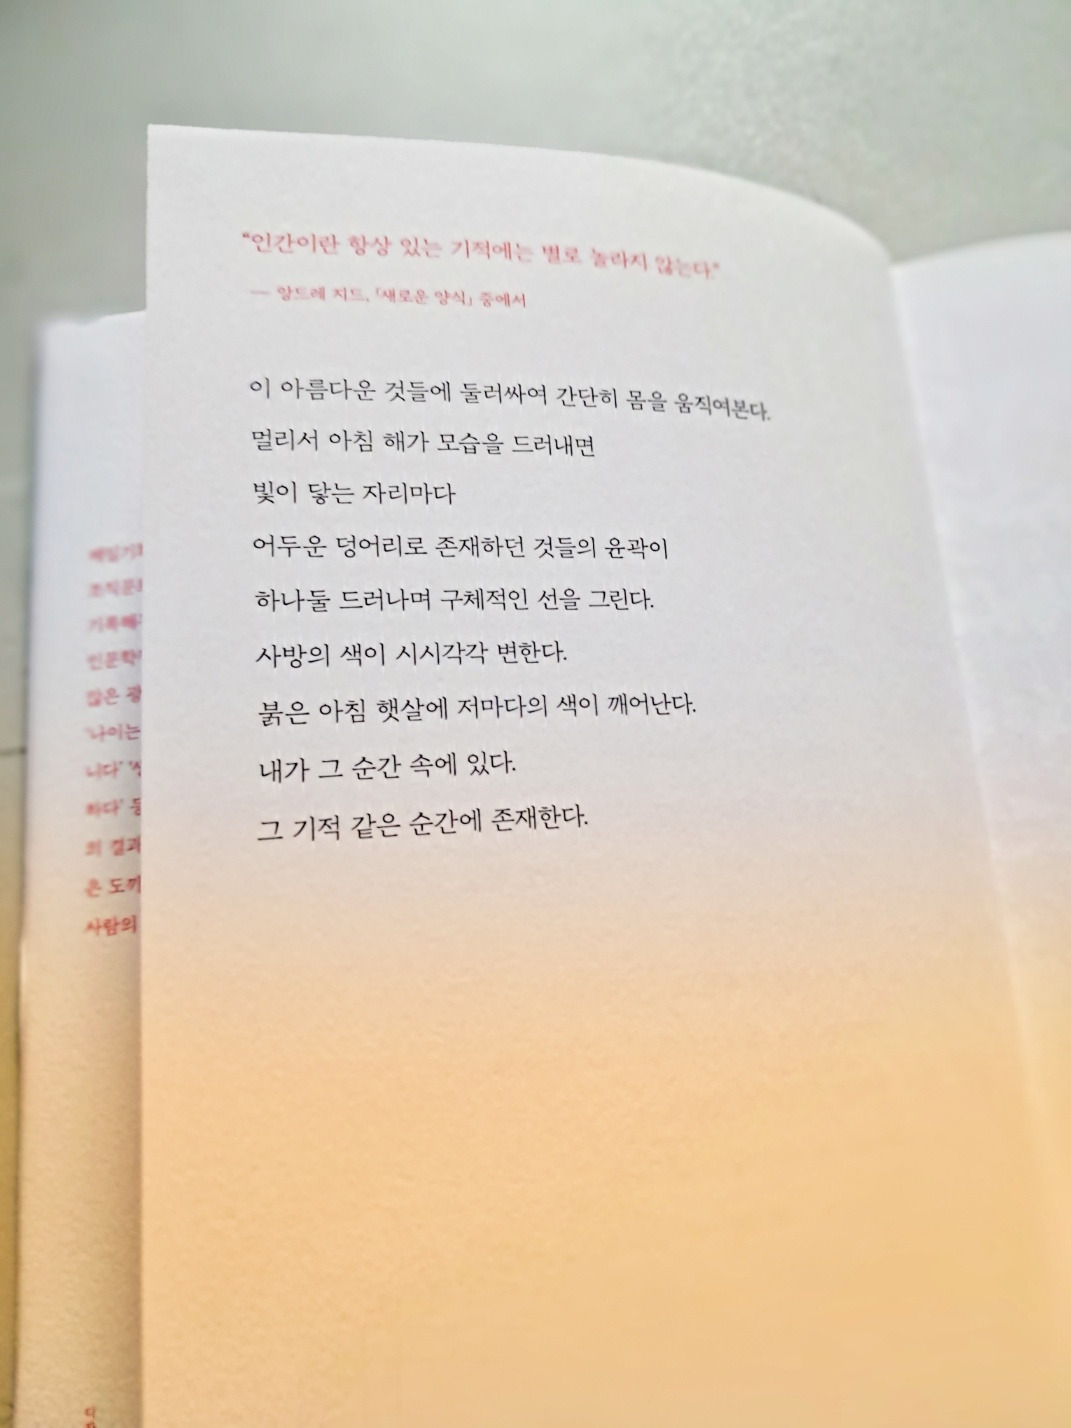 “인간이란 항상 있는 기적에는 별로 놀라지 않는다.”
— 앙드레 지드, 「새로운 양식」 중에서
이 아름다운 것들에 둘러싸여 간단히 몸을 움직여본다.
멀리서 아침 해가 모습을 드러내면
빛이 닿는 자리마다
어두운 덩어리로 존재하던 것들의 윤곽이
하나둘 드러나며 구체적인 선을 그린다.
사방의 색이 시시각각 변한다.
붉은 아침 햇살에 저마다의 색이 깨어난다.
내가 그 순간 속에 있다.
그 기적 같은 순간에 존재한다.
짧은
‘나이는
니다’
하다’
의
은
사람의